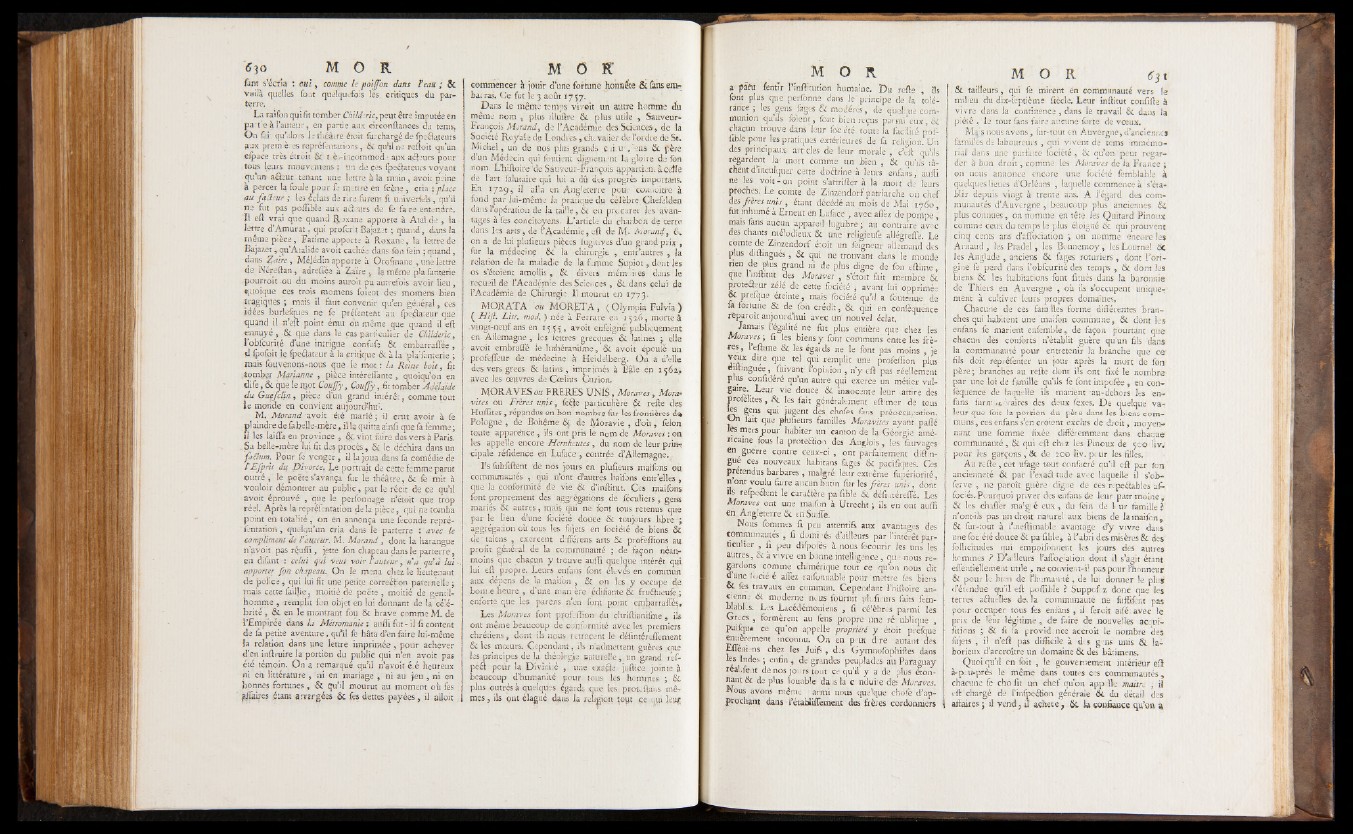 630 M O R
sant s'écria : oui, comme le poisson dans l'eau ; &
voilà quelles sont quelquefois les critiques du par-
terre.
La raison qui fit tomber Childéric, peut être imputée en
partie à l'auteur, en partie aux circonstances du tems.
On sait qu'alors le théâtre étoit surchargé de spectateurs
aux premières représentations, & qu'il ne restoit qu'un
espace très étroit & très-incommode aux acteurs pour
tous leurs mouvemens : un de ces spectateurs voyant
qu'un acteur tenant une lettre à la main, avoit peine
à percer la foule pour se mettre en scène, cria : place
au facteur ; les éclats de rire furent si universels, qu'il
ne fut pas possible aux acteurs de se faire entendre.
Il est vrai que quand Roxane apporte à Atalide, la
lettre d'Amurat, qui proscrit Bajazet ; quand, dans la
même pièce, Fatime apporte à Roxane, la lettre de
Bajazet, qu'Atalide avoit cachée dans son sein ; quand,
dans Zaïre, Mélédin apporte à Orosmane, une lettre
de Nérestan, adressée à Zaïre, la même plaisanterie
pourroit ou du moins auroit pu autrefois avoir lieu,
quoique ces trois momens soient des momens bien
tragiques ; mais il faut convenir qu'en général, ces
idées burlesques ne se présentent au spectateur que
quand il n'est point ému ou même que quand il est
ennuyé, & que dans le cas particulier de Childéric,
l'obscurité d'une intrigue confuse & embarrassée,
disposoit le spectateur à la critique & à la plaisanterie ;
mais souvenons-nous que le mot : la Reine boit, fit
tomber Marianne, pièce intéressante, quoiqu'on en
dise, & que le mot Coussy, Coussy, fit tomber Adélaïde
du Guesclin, pièce d'un grand intérêt, comme tout
le monde en convient aujourd'hui.
M. Morand avoit été marié ; il crut avoir à se
plaindre de sa belle-mère, il la quitta ainsi que sa femme ;
il les laissa en province, & vint faire des vers à Paris.
Sa belle-mère lui fit des procès, & le déchira dans un
factum. Pour se venger, il la joua dans sa comédie de
l'Esprit du Divorce. Le portrait de cette femme parut
outré, le poëte s'avança sur le théâtre, & se mit à
vouloir démontrer au public, par le récit de ce qu'il
avoit éprouvé, que le personnage n'étoit que trop
réel. Après la représentation de la pièce, qui ne tomba
point en totalité, on en annonça une seconde repré-
sentation, quelqu'un cria dans le parterre : avec le
compliment de l'auteur. M. Morand, dont la harangue
n'avoit pas réussi, jette son chapeau dans le parterre,
en disant : celui qui veut voir l'auteur, n'a qu'à lui
apporter son chapeau. On le mena chez le lieutenant
de police, qui lui fit une petite correction paternelle ;
mais cette saillie, moitié de poëte, moitié de gentil-
homme, remplit son objet en lui donnant de la célé-
brité, & en le montrant fou & brave comme M. de
l'Empirée dans la Métromanie : aussi fut-il si content
de sa petite aventure, qu'il se hâta d'en faire lui-même
la relation dans une lettre imprimée, pour achever
d'en instruire la portion du public qui n'en avoit pas
été témoin. On a remarqué qu'il n'avoit été heureux
ni en littérature, ni en mariage, ni au jeu, ni en
bonnes fortunes, & qu'il mourut au moment où ses
affaires étant arrangées & ses dettes payées, il alloit
M O R
commencer à jouir d'une fortune honnête & sans em-
barras. Ce fut le 3 août 1757.
Dans le même temps vivoit un autre homme du
même nom, plus illustre & plus utile, Sauveur-
François Morand, de l'Académie des Sciences, de la
Société Royale de Londres, chevalier de l'ordre de St.
Michel, un de nos plus grands chirurgiens & père
d'un Médecin qui soutient dignement la gloire de son
nom. L'histoire de Sauveur-François appartient à celle
de l'art salutaire qui lui a dû des progrès importans.
En 1729, il alla en Angleterre pour connoître à
fond par lui-même la pratique du célèbre Cheselden
dans l'opération de la taille, & en procurer les avan-
tages à ses concitoyens. L'article du charbon de terre
dans les arts, de l'Académie, est de M. Morand, &
on a de lui plusieurs pièces fugitives d'un grand prix,
sur la médecine & la chirurgie, entr'autres, la
relation de la maladie de la femme Supiot, dont les
os s'étoient amollis, & divers mémoires dans le
recueil de l'Académie des Sciences, & dans celui de
l'Académie de Chirurgie. Il mourut en 1773.
MORATA ou MORETA, (Olympia Fulvia)
(Hist. Litt. mod.) née à Ferrare en 1526, morte à
vingt-neuf ans en 1555, avoit enseigné publiquement
en Allemagne, les lettres grecques & latines ; elle
avoit embrassé le luthéranisme, & avoit épousé un
professeur de médecine à Heidelberg. On a d'elle
des vers grecs & latins, imprimés à Bâle en 1562,
avec les œuvres de Cœlius Curion.
MORAVES ou FRERES UNIS, Moraves, Mora-
vites ou Frères unis, secte particulière & reste des
Hussites, répandus en bon nombre sur les frontières de
Pologne, de Bohême & de Moravie, d'où, selon
toute apparence, ils ont pris le nom de Moraves : on
les appelle encore Hernhutes, du nom de leur prin-
cipale résidence en Lusace, contrée d'Allemagne.
Ils subsistent de nos jours en plusieurs maisons ou
communautés, qui n'ont d'autres liaisons entr'elles,
que la conformité de vie & d'institut. Ces maisons
sont proprement des aggrégations de séculiers, gens
mariés & autres, mais qui ne sont tous retenus que
par le lien d'une société douce & toujours libre ;
aggrégation où tous les sujets en société de biens &
de talens, exercent différens arts & professions au
profit général de la communauté ; de façon néan-
moins que chacun y trouve aussi quelque intérêt qui
lui est propre. Leurs enfans sont élevés en commun
aux dépens de la maison, & on les y occupe de
bonne heure, d'une manière édifiante & fructueuse ;
ensorte que les parens n'en sont point embarrassés.
Les Moraves font profession du christianisme, ils
ont même beaucoup de conformité avec les premiers
chrétiens, dont ils nous retracent le désintéressement
& les mœurs. Cependant, ils n'admettent guères que
les principes de la théologie naturelle, un grand res-
pect pour la Divinité, une exacte justice jointe à
beaucoup d'humanité pour tous les hommes ; &
plus outrés à quelques égards que les protestans mê-
mes, ils ont élagué dans la religion tout ce qui leur
M O R
a paru sentir l'institution humaine. Du reste, ils
sont plus que personne dans le principe de la tolé-
rance ; les gens sages & modérés, de quelque com-
munion qu'ils soient, sont bien reçus parmi eux, &
chacun trouve dans leur société toute la facilité pos-
sible pour les pratiques extérieures de sa religion. Un
des principaux articles de leur morale, c'est qu'ils
regardent la mort comme un bien, & qu'ils tâ-
chent d'inculquer cette doctrine à leurs enfans, aussi
ne les voit-on point s'attrister à la mort de leurs
proches. Le comte de Zinzendorf patriarche ou chef
des frères unis, étant décédé au mois de Mai 1760,
fut inhumé à Erneut en Lusace, avec assez de pompe,
mais sans aucun appareil lugubre ; au contraire avec
des chants mélodieux & une religieuse allégresse. Le
comte de Zinzendorf étoit un seigneur allemand des
plus distingués, & qui ne trouvant dans le monde
rien de plus grand ni de plus digne de son estime,
que l'institut des Moraves, s'étoit fait membre &
protecteur zélé de cette société, avant lui opprimée
& presque éteinte, mais société qu'il a soutenue de
sa fortune & de son crédit, & qui en conséquence
reparoît aujourd'hui avec un nouvel éclat.
Jamais l'égalité ne fut plus entière que chez les
Moraves ; si les biens y sont communs entre les frè-
res, l'estime & les égards ne le sont pas moins, je
veux dire que tel qui remplit une profession plus
distinguée, suivant l'opinion, n'y est pas réellement
plus considéré qu'un autre qui exerce un métier vul-
gaire. Leur vie douce & innocente leur attire des
prosélites, & les fait généralement estimer de tous
les gens qui jugent des choses sans préoccupation.
On sait que plusieurs familles Moravites ayant passé
les mers pour habiter un canton de la Géorgie amé-
ricaine sous la protection des Anglois, les sauvages
en guerre contre ceux-ci, ont parfaitement distin-
gué ces nouveaux habitans sages & pacifiques. Ces
prétendus barbares, malgré leur extrême supériorité,
n'ont voulu faire aucun butin sur les frères unis, dont
ils respectent le caractère paisible & désintéressé. Les
Moraves ont une maison à Utrecht ; ils en ont aussi
en Angleterre & en Suisse.
Nous sommes si peu attentifs aux avantages des
communautés, si dominés d'ailleurs par l'intérêt par-
ticulier, si peu disposés à nous secourir les uns les
autres, & à vivre en bonne intelligence, que nous re-
gardons comme chimérique tout ce qu'on nous dit
d'une société assez raisonnable pour mettre ses biens
& ses travaux en commun. Cependant l'histoire an-
cienne & moderne nous fournit plusieurs faits sem-
blables. Les Lacédémoniens, si célèbres parmi les
Grecs, formèrent au sens propre une république,
puisque ce qu'on appelle propriété y étoit presque
entièrement inconnu. On en peut dire autant des
Esséniens chez les Juifs, des Gymnosophistes dans
les Indes ; enfin, de grandes peuplades au Paraguay
réalisent de nos jours tout ce qu'il y a de plus éton-
nant & de plus louable dans la conduite des Moraves.
Nous avons même parmi nous quelque chose d'ap-
prochant dans l'établissement des frères cordonniers
M O R 631
& tailleurs, qui se mirent en communauté vers le
milieu du dix-septième siècle. Leur institut consiste à
vivre dans la continence, dans le travail & dans la
piété, le tout sans faire aucune sorte de vœux.
Mais nous avons, sur-tout en Auvergne, d'anciennes
familles de laboureurs, qui vivent de tems immémo-
rial dans une parfaite société, & qu'on peut regar-
der à bon droit, comme les Moraves de la France ;
on nous annonce encore une société semblable à
quelques lieues d'Orléans, laquelle commence à s'éta-
blir depuis vingt à trente ans. A l'égard des com-
munautés d'Auvergne, beaucoup plus anciennes &
plus connues, on nomme en tête les Quitard Pinoux
comme ceux du temps le plus éloigné & qui prouvent
cinq cents ans d'association ; on nomme encore les
Arnaud, les Pradel, les Bonnemoy, les Tournel &
les Anglade, anciens & sages roturiers, dont l'ori-
gine se perd dans l'obscurité des temps, & dont les
biens & les habitations sont situés dans la baronnie
de Thiers en Auvergne, où ils s'occupent unique-
ment à cultiver leurs propres domaines.
Chacune de ces familles forme différentes bran-
ches qui habitent une maison commune, & dont les
enfans se marient ensemble, de façon pourtant que
chacun des consorts n'établit guère qu'un fils dans
la communauté pour entretenir la branche que ce
fils doit représenter un jour après la mort de son
père ; branches au reste dont ils ont fixé le nombre
par une loi de famille qu'ils se sont imposée, en con-
séquence de laquelle ils marient au-dehors les en-
fans surnuméraires des deux sexes. De quelque va-
leur que soit la portion du père dans les biens com-
muns, ces enfans s'en croient exclus de droit, moyen-
nant une somme fixée différemment dans chaque
communauté, & qui est chez les Pinoux de 500 liv.
pour les garçons, & de 200 liv. pour les filles.
Au reste, cet usage tout consacré qu'il est par son
ancienneté & par l'exactitude avec laquelle il s'ob-
serve, ne paroît guère digne de ces respectables as-
sociés. Pourquoi priver des enfans de leur patrimoine,
& les chasser malgré eux, du sein de leur famille ?
n'ont-ils pas un droit naturel aux biens de la maison,
& sur-tout à l'inestimable avantage d'y vivre dans
une société douce & paisible, à l'abri des misères & des
sollicitudes qui empoisonnent les jours des autres
hommes ? D'ailleurs l'association dont il s'agit étant
essentiellement utile, ne convient-il pas pour l'honneur
& pour le bien de l'humanité, de lui donner le plus
d'étendue qu'il est possible ? Supposez donc que les
terres actuelles de la communauté ne suffisent pas
pour occuper tous ses enfans, il seroit aisé avec le
prix de leur légitime, de faire de nouvelles acqui-
sitions ; & si la providence accroît le nombre des
sujets, il n'est pas difficile à des gens unis & la-
borieux d'accroître un domaine & des bâtimens.
Quoi qu'il en soit, le gouvernement intérieur est
à-peu-près le même dans toutes ces communautés,
chacune se choisit un chef qu'on appelle maître ; il
est chargé de l'inspection générale & du détail des
affaires ; il vend, il achete, & la confiance qu'on a